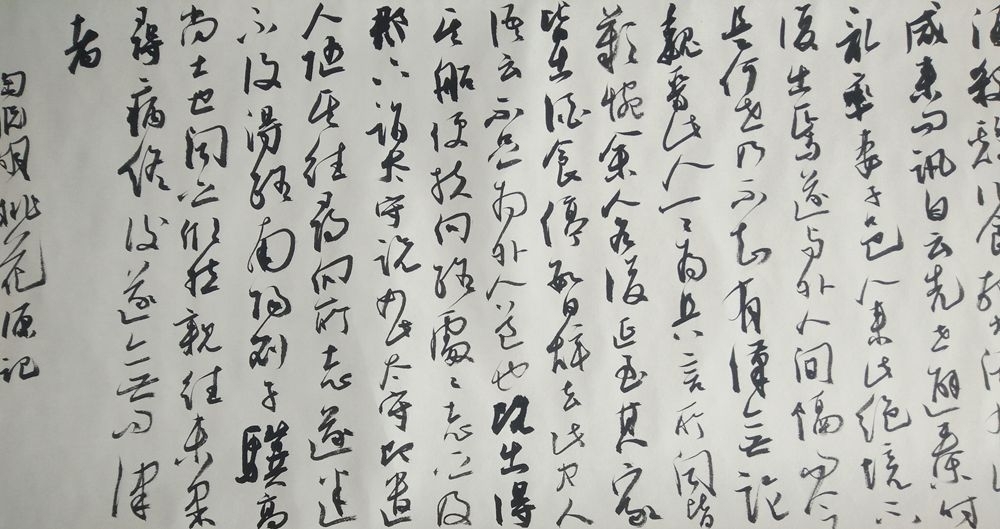 酒殺雞作食村
咸来问訊自云先世避秦时
乱率妻子邑人来此绝境不
復出焉遂与外人间隔问今
是何世乃不知有漢無論
魏晋此人一一为具言所闻皆
歎惋余人各復延至其家
皆出酒食停數日辞去此中人
语云不足为外人道也既出得
其船便扶向路處々志之及
郡下詣太守説如此太守即遣
人随其往尋向所志遂迷
不復得路南陽刘子驥高
尚士也闻之欣然親往未果
尋病终後遂無问津
者
陶渊明桃花源记